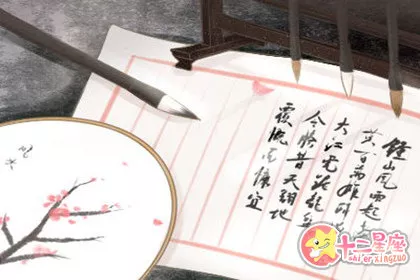 鍾山风雨起
黄百万雄师
大江虎踞龙
今胜昔天翻地
覆慨而慷宜
十二星座
shi'er xingzuo